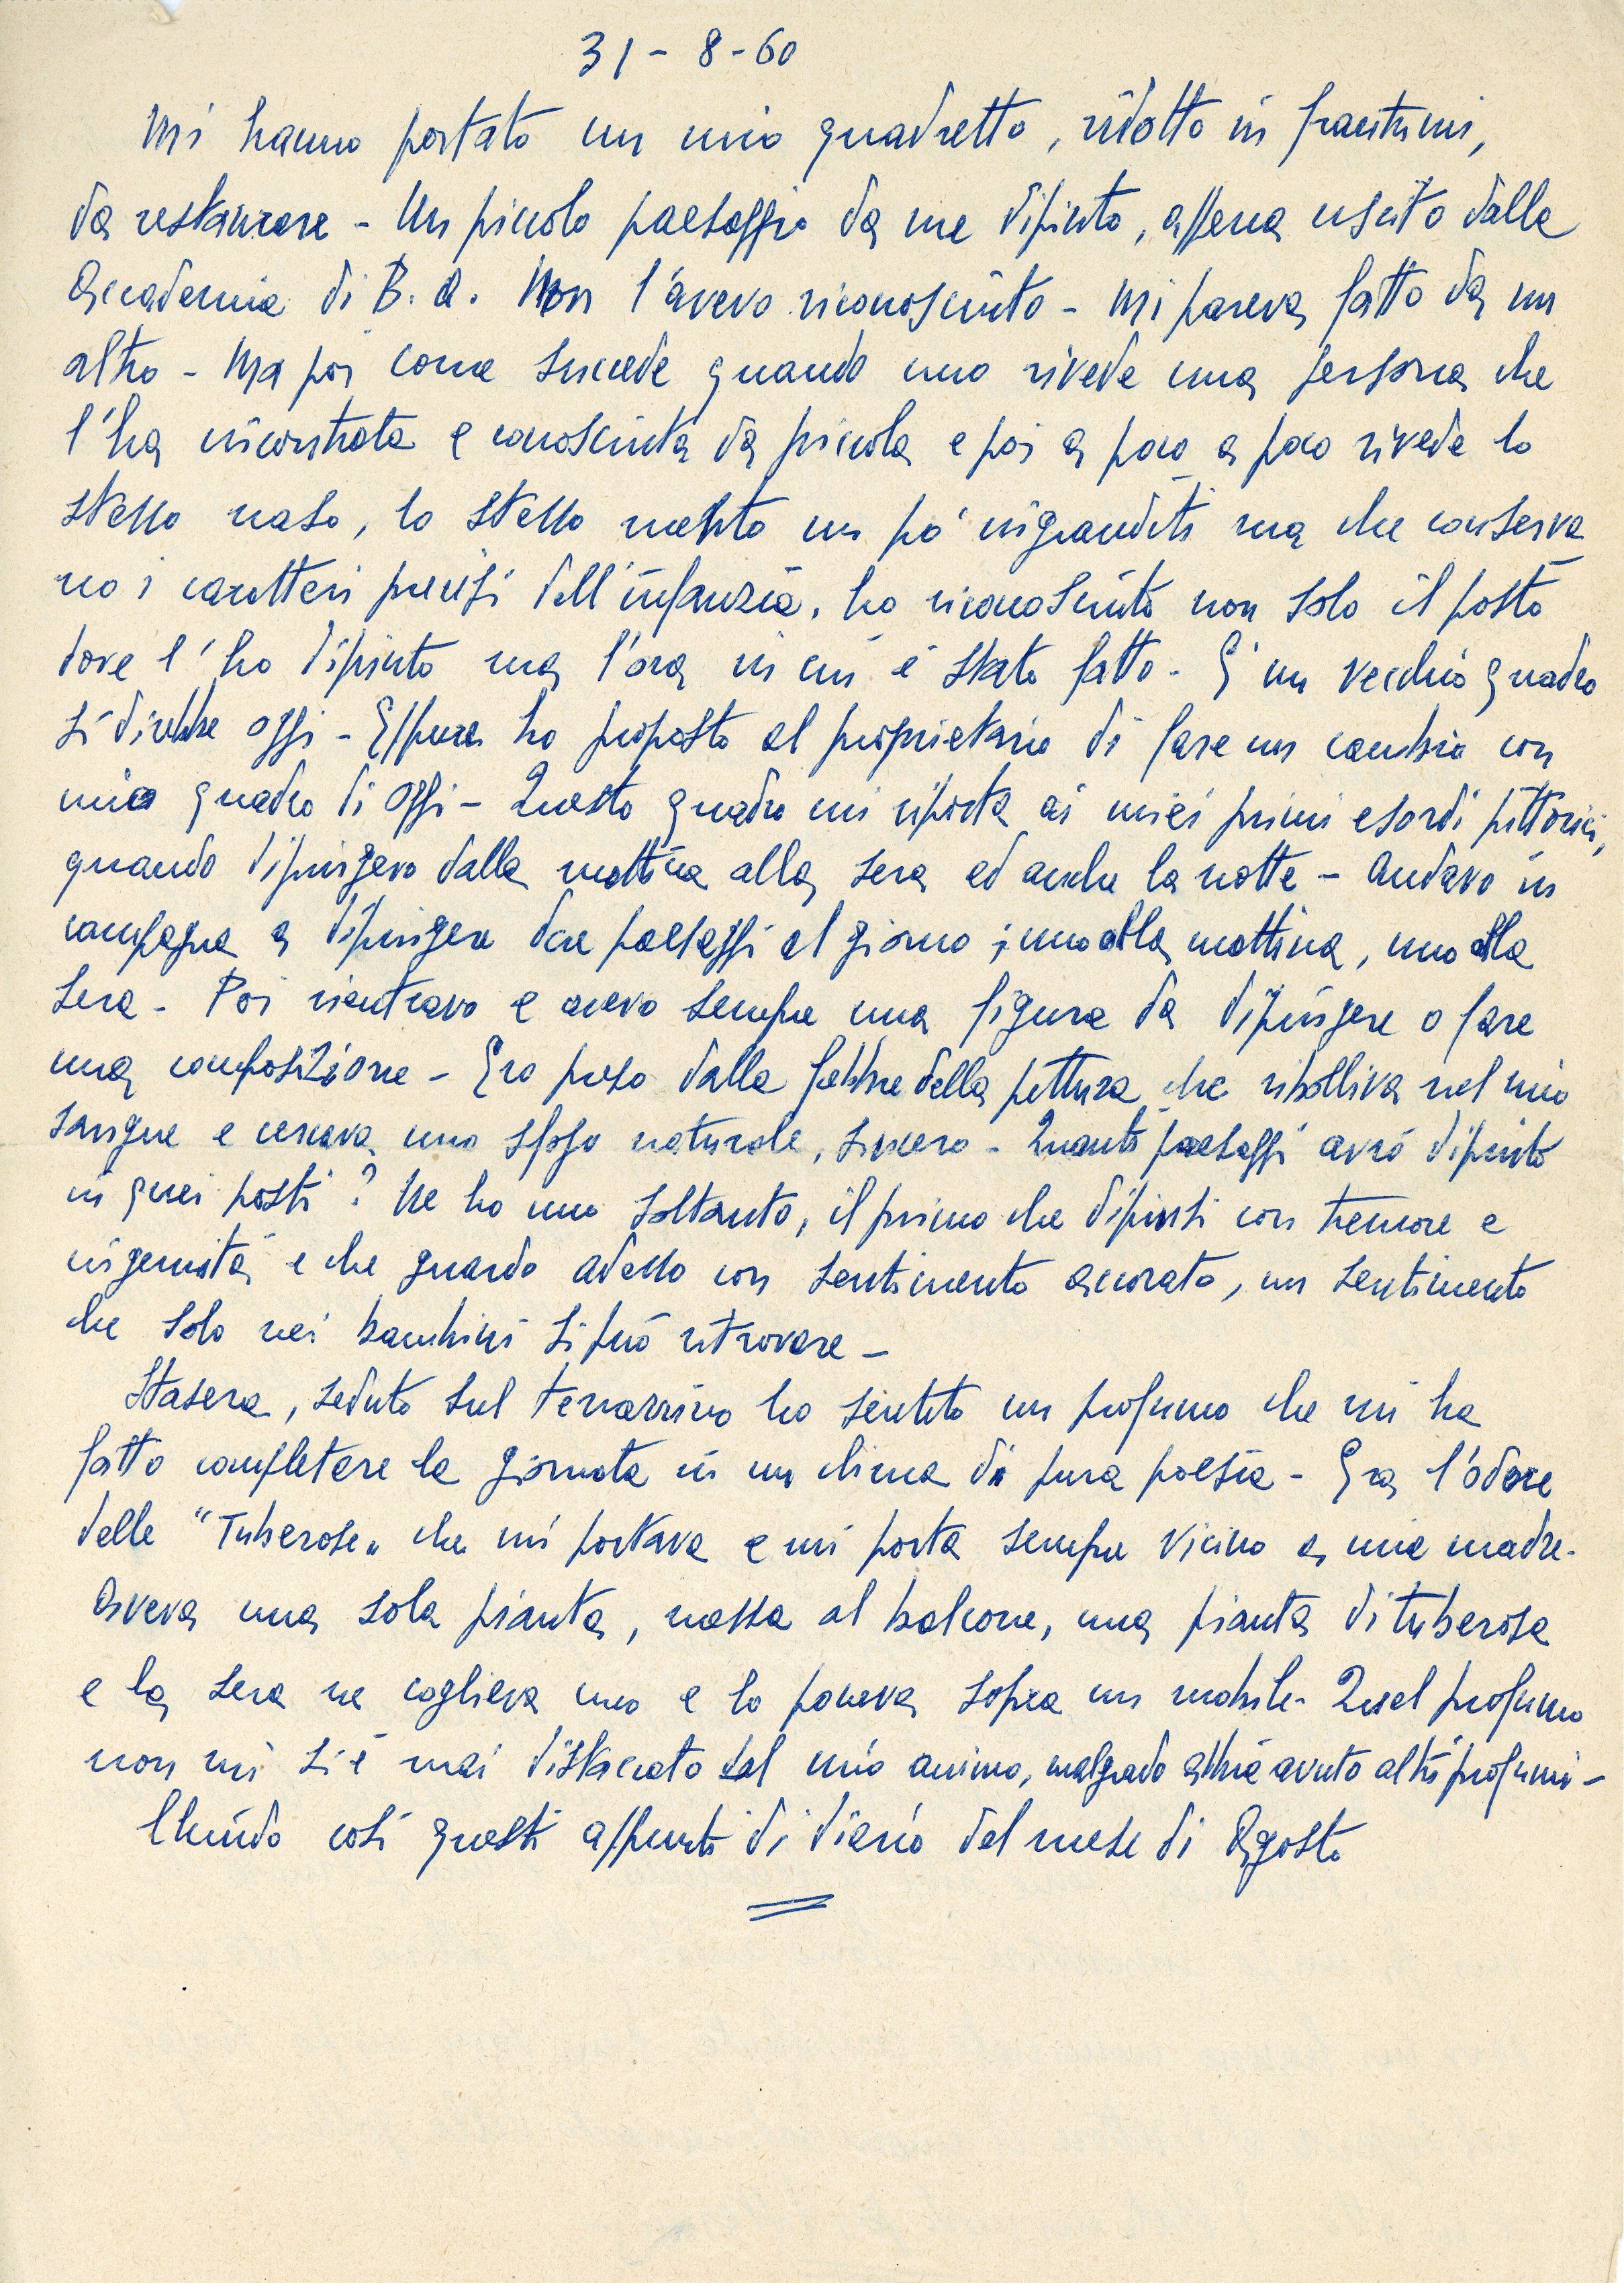 31 - 8 - 60
Mi hanno portato un mio quadretto, ridotto in frantumi,
da restaurare - Un piccolo paesaggio da me dipinto, appena uscito dalla
Accademia di B. A. Non l'avevo riconosciuto - Mi pareva fatto da un
altro - Ma poi come succede quando uno rivede una persona che
l'ha incontrata e conosciuta da piccola e poi a poco a poco rivede lo
stesso naso, lo stesso mento un po' ingranditi ma che conserva
no i caratteri precisi dell'infanzia, ho riconosciuto non solo il posto
dove l'ho dipinto ma l'ora in cui è stato fatto - E' un vecchio quadro
si direbbe oggi - Eppure ho proposto al proprietario di fare un cambio con
mio quadro di oggi - Questo quadro mi riporta ai miei primi esordi pittorici,
quando dipingevo dalla mattina alla sera ed anche la notte - Andavo in
campagna a dipingere due paesaggi al giorno ; uno alla mattina, uno alla
sera - Poi rientravo e avevo sempre una figura da dipingere o fare
una composizione - Ero preso dalla febbre della pittura che ribolliva nel mio
sangue e cercava uno sfogo naturale, sincero - Quanti paesaggi avrò dipinto
in quei posti ? Ne ho uno soltanto, il primo che dipinsi con tremore e
ingenuità e che guardo adesso con sentimento accorato, un sentimento
che solo nei bambini si può ritrovare -
Stasera, seduto sul terrazzino ho sentito un profumo che mi ha
fatto completare la giornata in un clima di pura poesia - Era l'odore
delle "Tuberose" che mi portava e mi porta sempre vicino a mia madre -
Aveva una sola pianta, messa al balcone, una pianta di tuberosa
e la sera ne coglieva uno e lo poneva sopra un mobile - Quel profumo
non mi si è mai distaccato dal mio animo, malgrado abbia avuto altri profumi -
Chiudo così questi appunti di diario del mese di Agosto